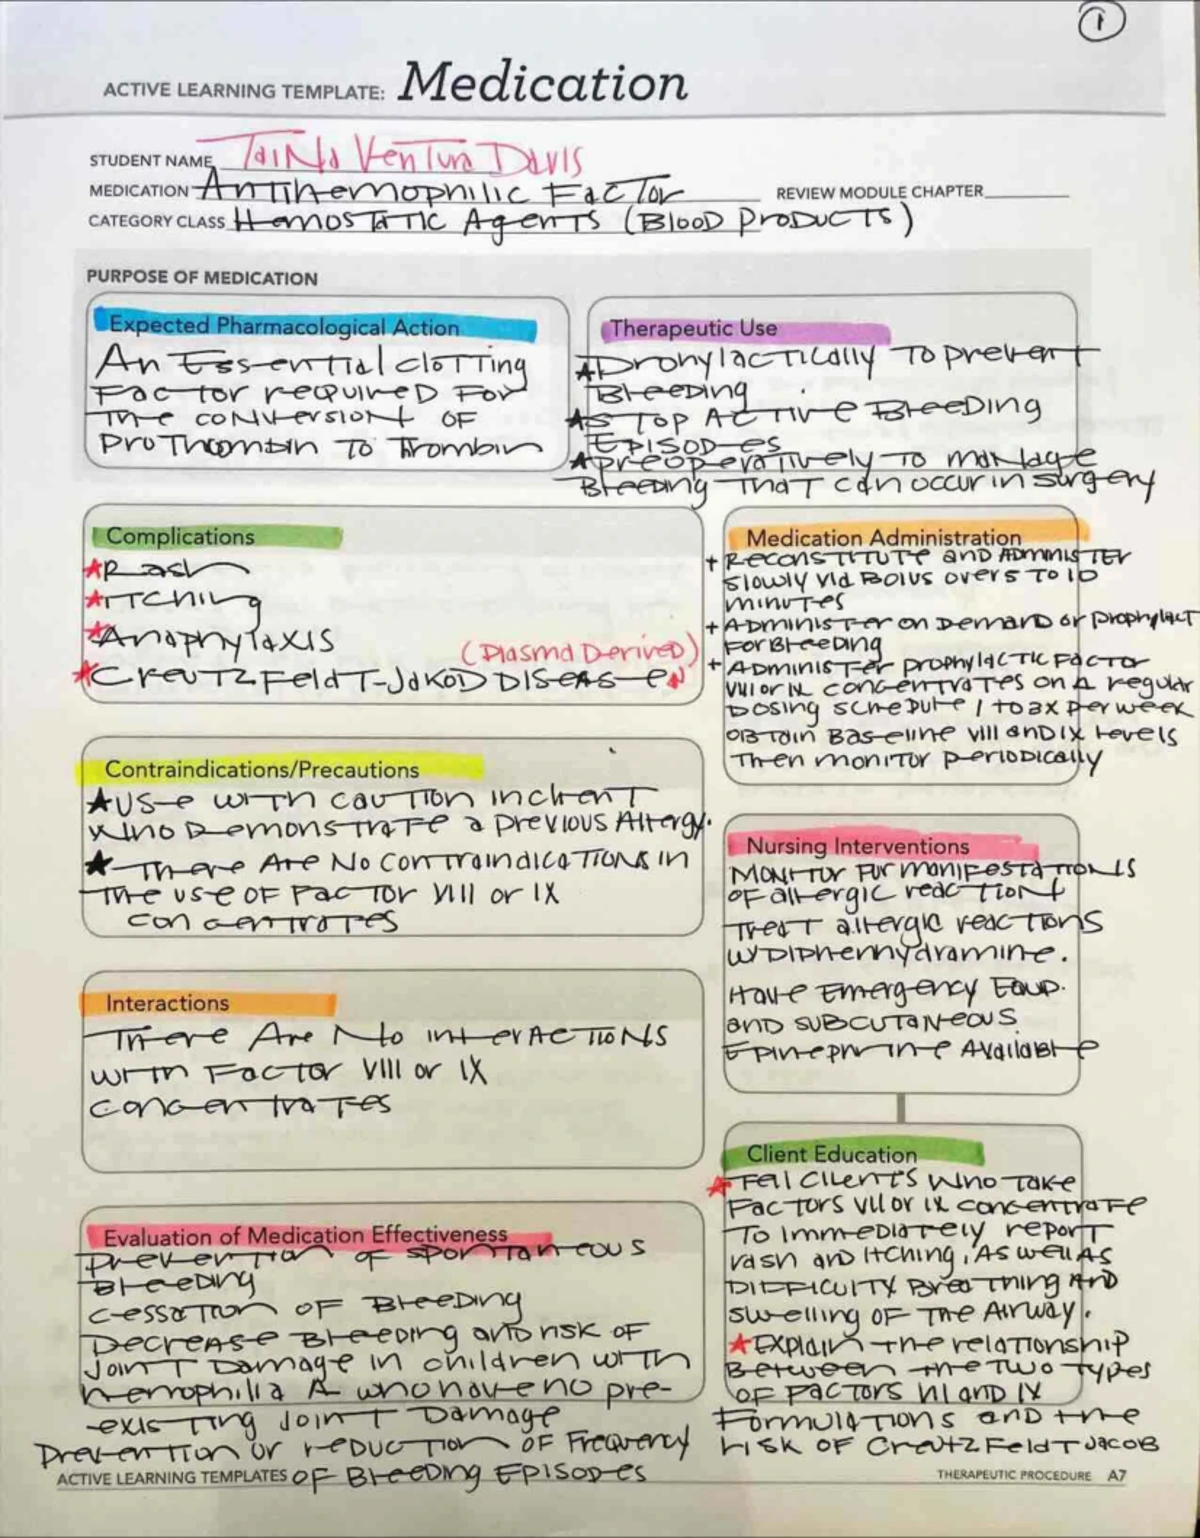 1
ACTIVE LEARNING TEMPLATE: Medication
STUDENT NAME TaiNa Ventura Davis
MEDICATION Antihemophilic Factor REVIEW MODULE CHAPTER
CATEGORY CLASS Hemostatic Agents (Blood Products)
PURPOSE OF MEDICATION
Expected Pharmacological Action
An Essential clotting
Factor required For
the conversion of
prothrombin to Thrombin
Therapeutic Use
★Prophylactically to prevent
Bleeding
★Stop Active Bleeding
Episodes
★preoperatively to manage
Bleeding that can occur in surgery
Complications
★Rash
★Itching
★Anaphylaxis
(Plasma Derived)
★Creutzfeldt-Jakob Disease
Medication Administration
+ Reconstitute and Administer
slowly via Bolus over 5 to 10
minutes
+ Administer on Demand or prophylact
for Bleeding
+ Administer prophylactic factor
VIII or IX concentrates on a regular
Dosing schedule 1 to 3x per week
obtain Baseline VIII and IX levels
Then monitor periodically
Contraindications/Precautions
★Use with caution in client
who Demonstrate a previous Allergy.
★ There Are No contraindications in
the use of Factor VIII or IX
concentrates
Nursing Interventions
Monitor for manifestations
of allergic reaction
Treat allergic reactions
w/Diphenhydramine.
Have Emergency Equip.
and subcutaneous
Epinephrine Available
Interactions
There Are No interactions
with Factor VIII or IX
concentrates
Client Education
★Tell clients who take
Factors VII or IX concentrate
to Immediately report
rash and Itching, As well As
Difficulty Breathing and
swelling of the Airway.
★Explain the relationship
Between the two types
of Factors VII and IX
Formulations and the
risk of Creutzfeldt Jacob
Evaluation of Medication Effectiveness
Prevention of spontaneous
Bleeding
cessation of Bleeding
Decrease Bleeding and risk of
Joint Damage in children with
hemophilia A who have no pre-
existing Joint Damage
Prevention or reduction of Frequency
of Bleeding Episodes
ACTIVE LEARNING TEMPLATES
THERAPEUTIC PROCEDURE A7